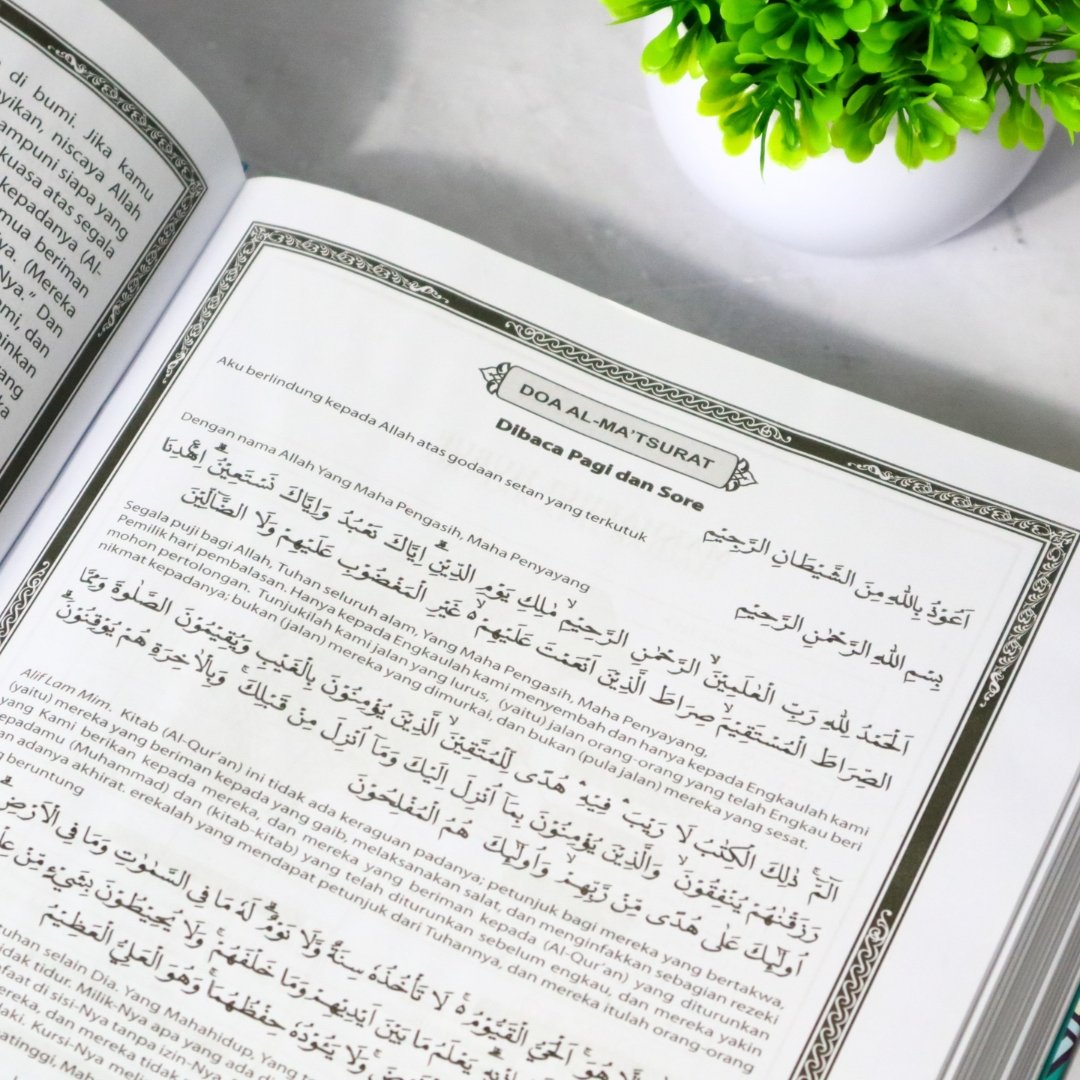 di bumi. Jika kamu
niscaya Allah
siapa yang
kuasa atas segala
kepadanya (Al-
beriman
(Mereka
Nya." Dan
dan
DOA AL-MA'TSURAT
Dibaca Pagi dan Sore
اَعُوْذُ بِاللهِ مِنَ الشَّيْطَانِ الرَّجِيْمِ
Aku berlindung kepada Allah atas godaan setan yang terkutuk
بِسْمِ اللهِ الرَّحْمٰنِ الرَّحِيْمِ
Dengan nama Allah Yang Maha Pengasih, Maha Penyayang
اَلْحَمْدُ لِلّٰهِ رَبِّ الْعٰلَمِيْنَۙ الرَّحْمٰنِ الرَّحِيْمِۙ مٰلِكِ يَوْمِ الدِّيْنِۗ اِيَّاكَ نَعْبُدُ وَاِيَّاكَ نَسْتَعِيْنُۗ اِهْدِنَا
الصِّرَاطَ الْمُسْتَقِيْمَۙ صِرَاطَ الَّذِيْنَ اَنْعَمْتَ عَلَيْهِمْ ەۙ غَيْرِ الْمَغْضُوْبِ عَلَيْهِمْ وَلَا الضَّاۤلِّيْنَ
Segala puji bagi Allah, Tuhan seluruh alam, Yang Maha Pengasih, Maha Penyayang,
Pemilik hari pembalasan. Hanya kepada Engkaulah kami menyembah dan hanya kepada Engkaulah kami
mohon pertolongan. Tunjukilah kami jalan yang lurus, (yaitu) jalan orang-orang yang telah Engkau beri
nikmat kepadanya; bukan (jalan) mereka yang dimurkai, dan bukan (pula jalan) mereka yang sesat.
الۤمّۤۚ ذٰلِكَ الْكِتٰبُ لَا رَيْبَۛ فِيْهِۛ هُدًى لِّلْمُتَّقِيْنَۙ الَّذِيْنَ يُؤْمِنُوْنَ بِالْغَيْبِ وَيُقِيْمُوْنَ الصَّلٰوةَ وَمِمَّا
رَزَقْنٰهُمْ يُنْفِقُوْنَۙ وَالَّذِيْنَ يُؤْمِنُوْنَ بِمَآ اُنْزِلَ اِلَيْكَ وَمَآ اُنْزِلَ مِنْ قَبْلِكَۚ وَبِالْاٰخِرَةِ هُمْ يُوْقِنُوْنَۗ
اُولٰۤىِٕكَ عَلٰى هُدًى مِّنْ رَّبِّهِمْۙ وَاُولٰۤىِٕكَ هُمُ الْمُفْلِحُوْنَ
Alif Lam Mim. Kitab (Al-Qur'an) ini tidak ada keraguan padanya; petunjuk bagi mereka yang bertakwa,
(yaitu) mereka yang beriman kepada yang gaib, melaksanakan salat, dan menginfakkan sebagian rezeki
yang Kami berikan kepada mereka, dan mereka yang beriman kepada (Al-Qur'an) yang diturunkan
(Muhammad) dan (kitab-kitab) yang telah diturunkan sebelum engkau, dan mereka yakin
adanya akhirat. erekalah yang mendapat petunjuk dari Tuhannya, dan mereka itulah orang-orang
beruntung
هُوَۚ اَلْحَيُّ الْقَيُّوْمُ ەۚ لَا تَأْخُذُهٗ سِنَةٌ وَّلَا نَوْمٌۗ لَهٗ مَا فِى السَّمٰوٰتِ وَمَا فِى الْاَرْضِۗ
يَعْلَمُ مَا بَيْنَ اَيْدِيْهِمْ وَمَا خَلْفَهُمْۚ وَلَا يُحِيْطُوْنَ بِشَيْءٍ مِّنْ
وَلَا يَـُٔوْدُهٗ حِفْظُهُمَاۚ وَهُوَ الْعَلِيُّ الْعَظِيْمُ
selain Dia. Yang Mahahidup, Yang
tidak tidur. Milik-Nya apa yang ada di
di sisi-Nya tanpa izin-Nya
dan mereka tidak
Kursi-Nya